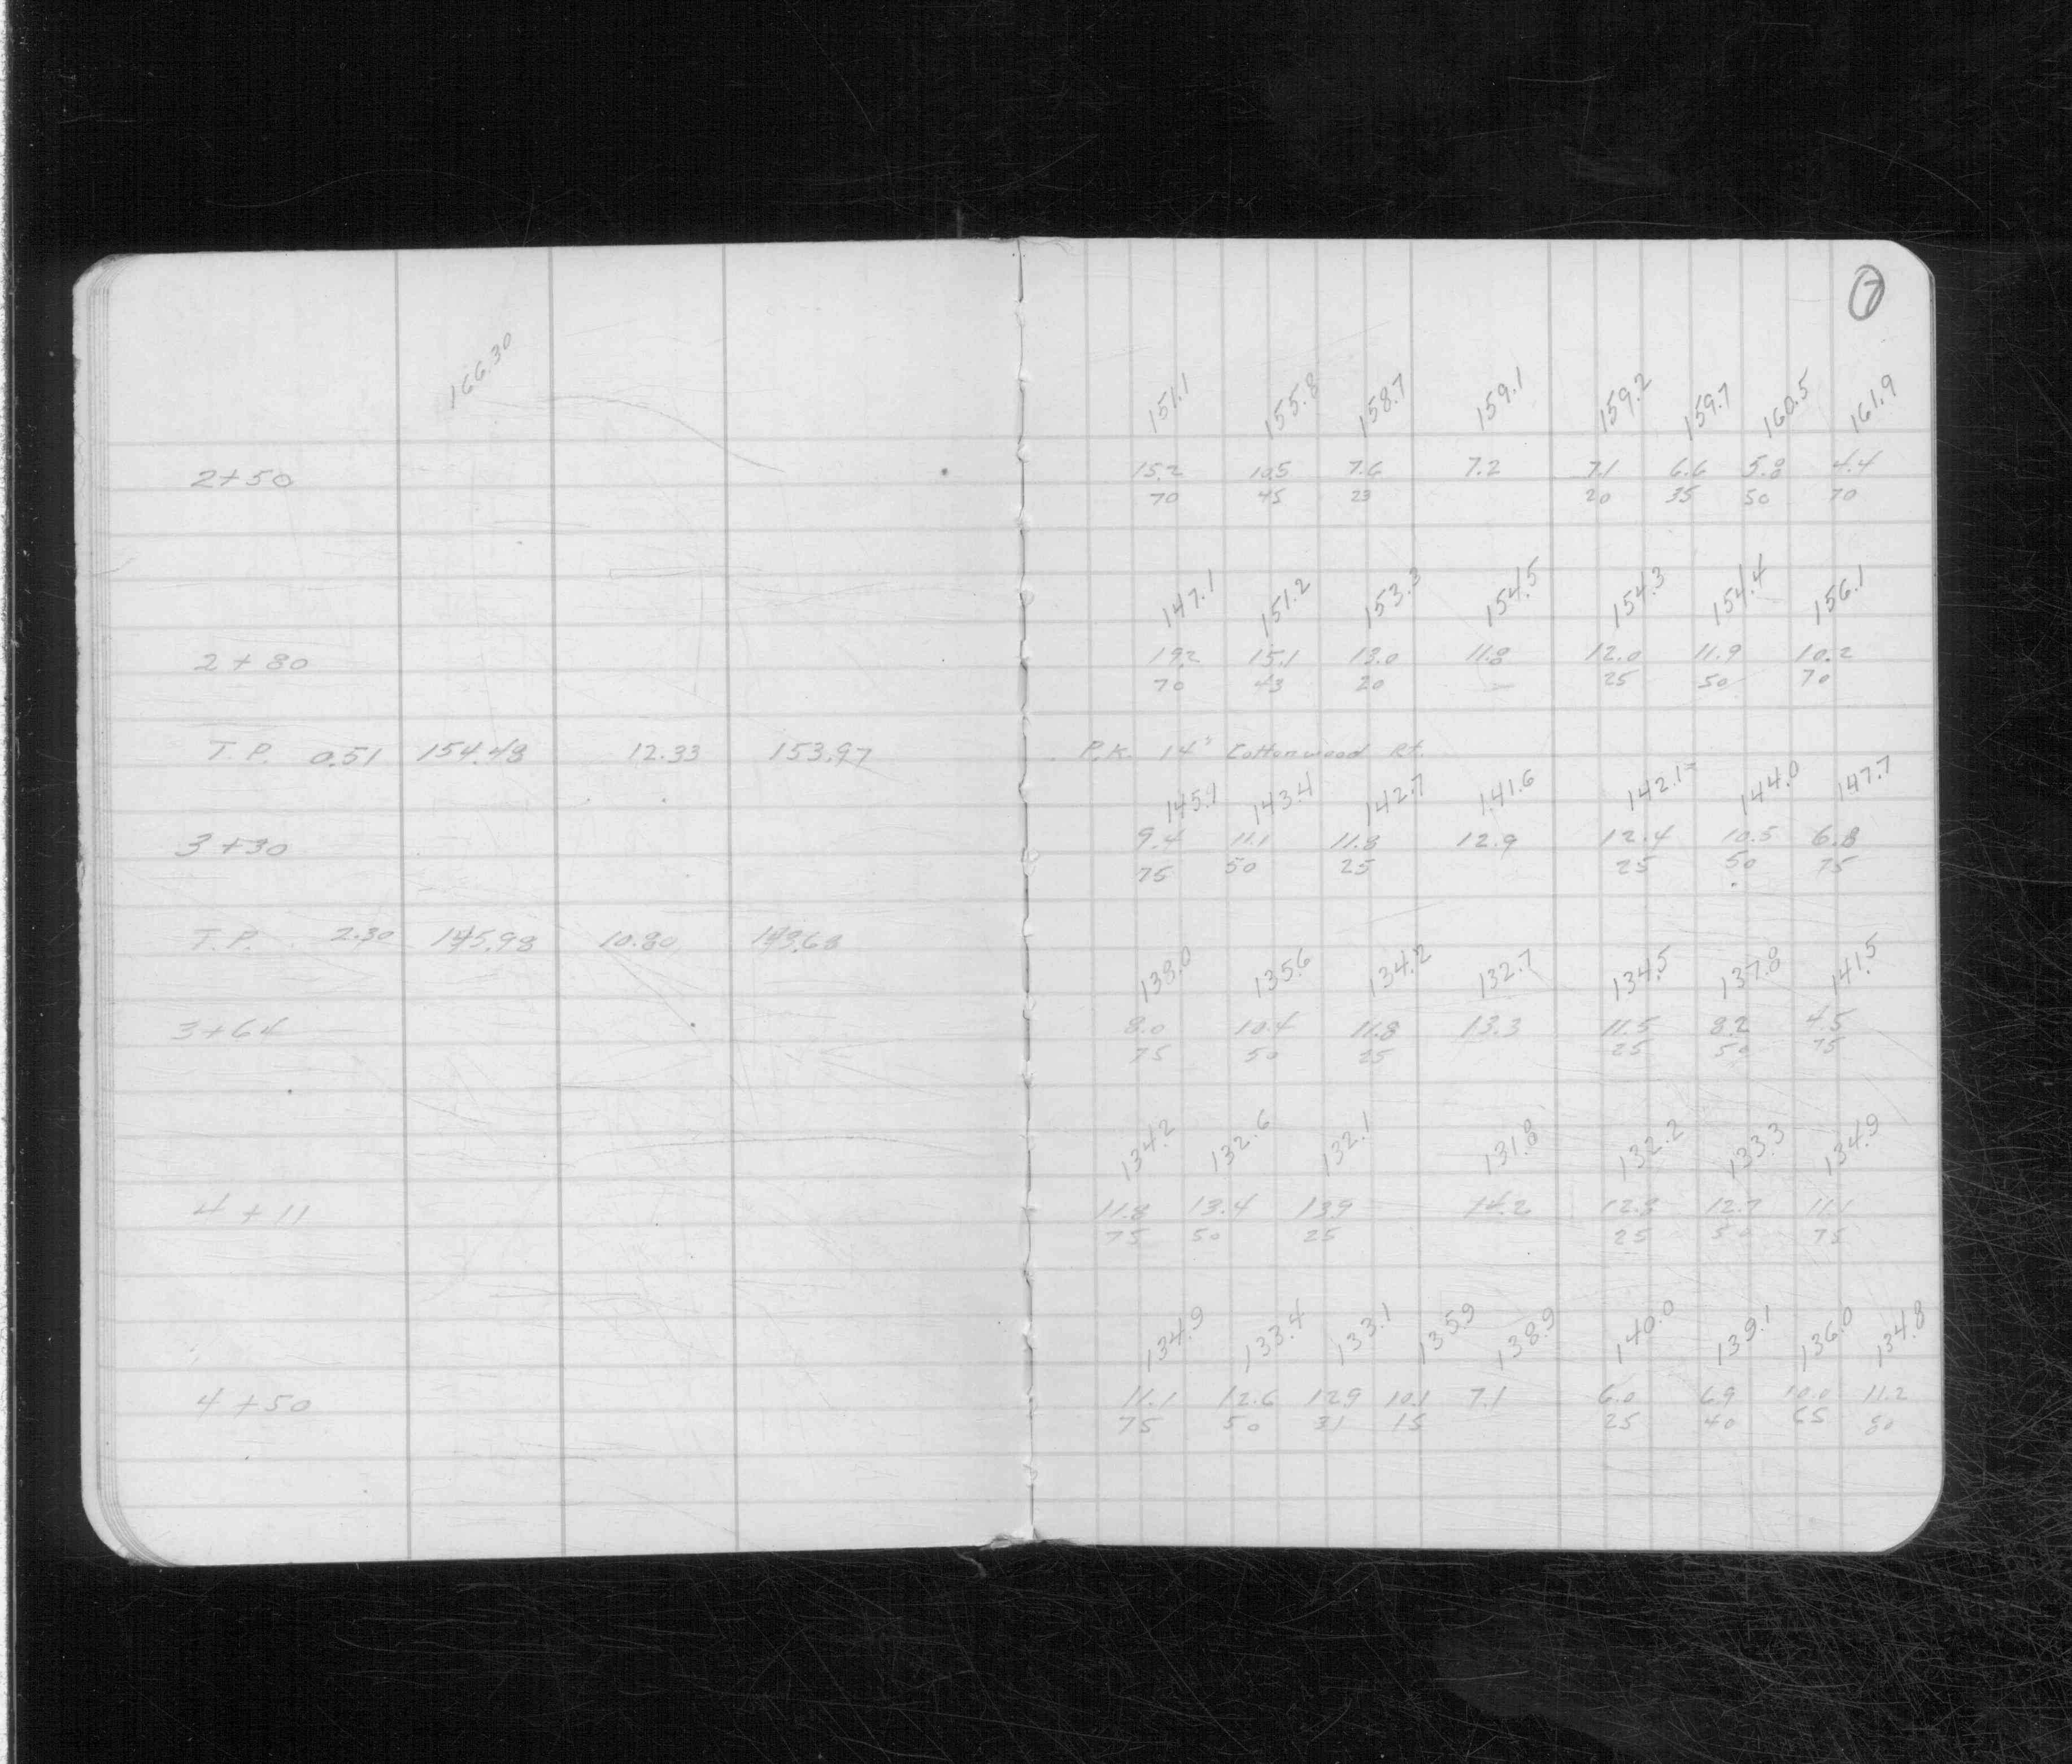 7
166.30
151.1 155.8 158.7 159.1 159.2 159.7 160.5 161.9
2+50 15.2 10.5 7.6 7.2 7.1 6.6 5.8 4.4
70 45 23 20 35 50 70
147.1 151.2 153.3 154.5 154.3 154.4 156.1
2+80 19.2 15.1 13.0 11.8 12.0 11.9 10.2
70 43 20 25 50 70
T.P. 0.51 154.48 12.33 153.97 P.K. 14" Cottonwood Rt.
145.1 143.4 142.7 141.6 142.1 144.0 147.7
3+30 9.4 11.1 11.8 12.9 12.4 10.5 6.8
75 50 25 25 50 75
T.P. 2.30 145.98 10.80 143.68
138.0 135.6 134.2 132.7 134.5 137.8 141.5
3+64 8.0 10.4 11.8 13.3 11.5 8.2 4.5
75 50 25 25 50 75
134.2 132.6 132.1 131.8 132.2 133.3 134.9
4+11 11.8 13.4 13.9 14.2 12.7 11.1
75 50 25 25 50 75
134.9 133.4 133.1 135.9 138.9 140.0 139.1 136.0 134.8
4+50 11.1 12.6 12.9 10.1 7.1 6.0 6.9 10.0 11.2
75 50 31 15 25 40 65 80